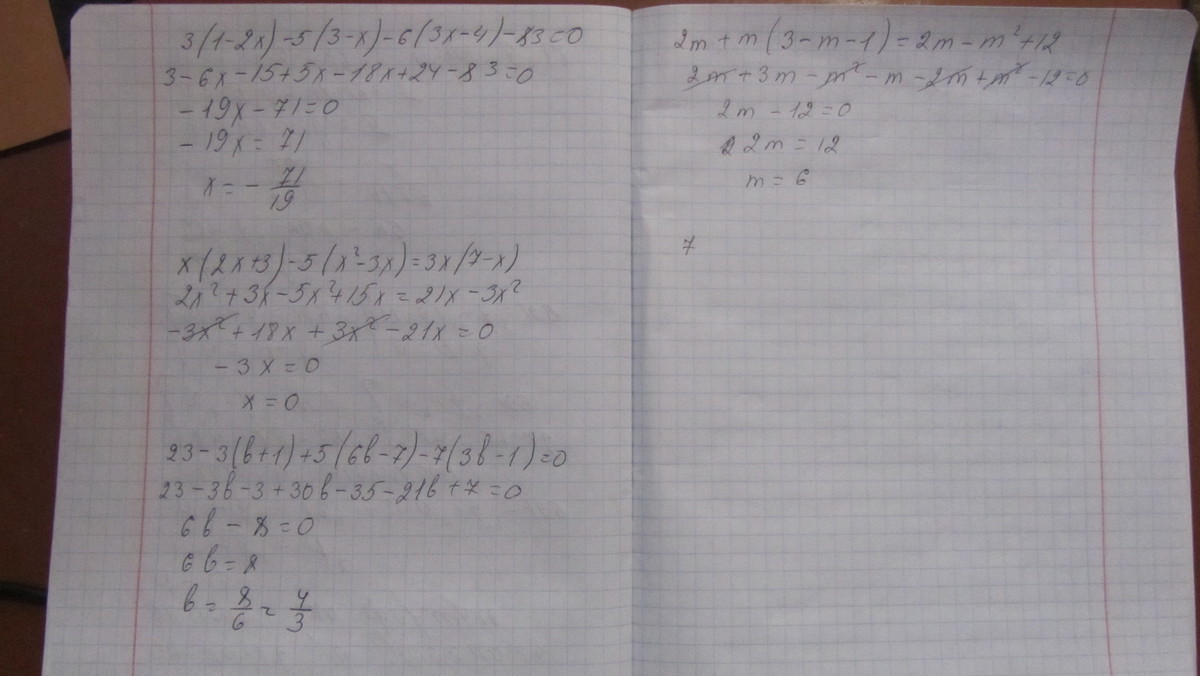 3(1-2x)-5(3-x)-6(3x-4)-83=0
3-6x-15+5x-18x+24-83=0
-19x-71=0
-19x=71
x=-71/19
x(2x+3)-5(x²-3x)=3x(7-x)
2x²+3x-5x²+15x=21x-3x²
-3x²+18x+3x²-21x=0
-3x=0
x=0
23-3(b+1)+5(6b-7)-7(3b-1)=0
23-3b-3+30b-35-21b+7=0
6b-8=0
6b=8
b=8/6=4/3
2m+m(3-m-1)=2m-m²+12
2m+3m-m²-m-2m+m²-12=0
2m-12=0
2m=12
m=6
7